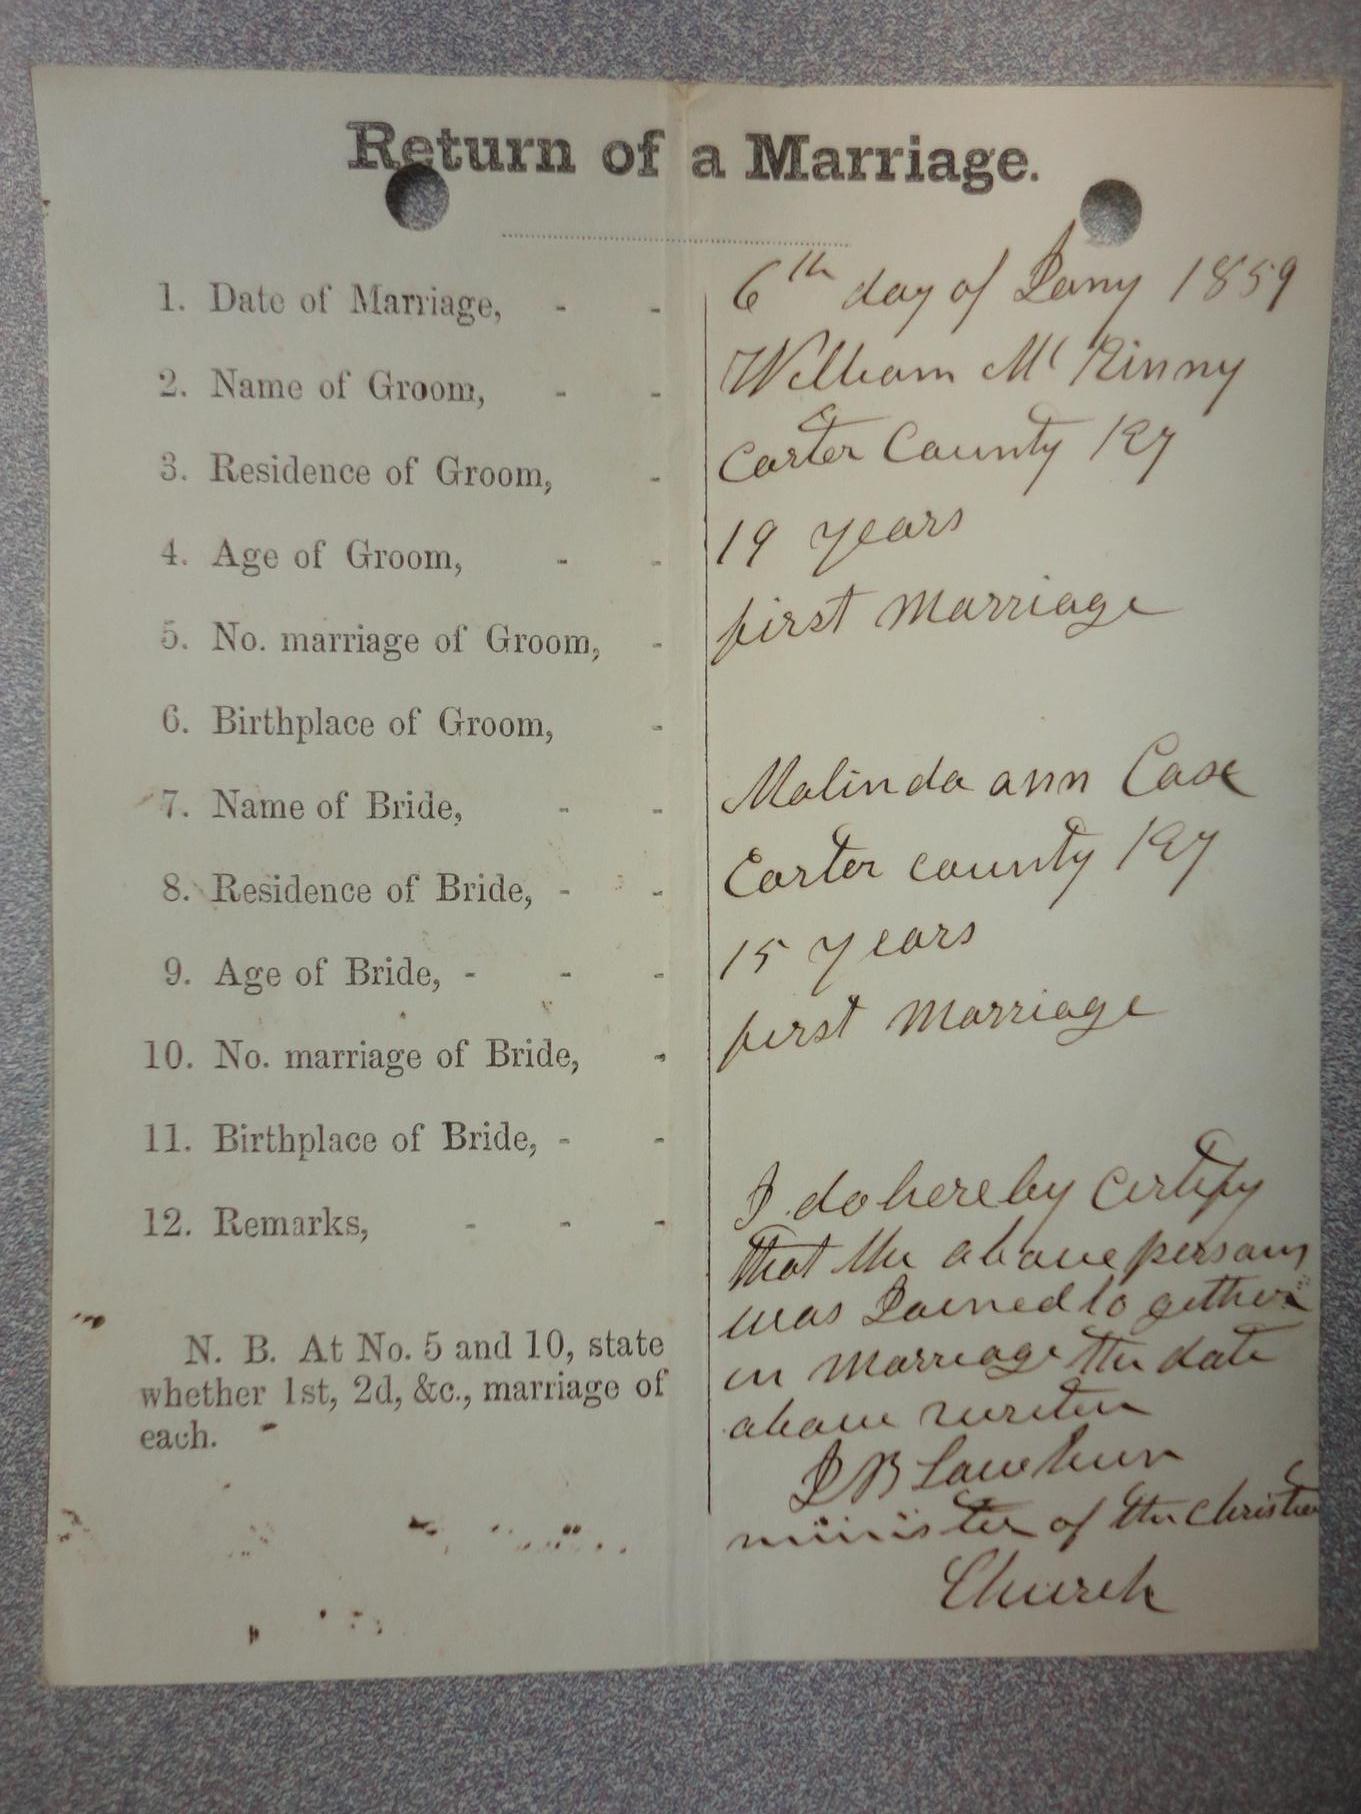 Return of a Marriage.
1. Date of Marriage, - - 6th day of Jany 1859
2. Name of Groom, - - William McKinny
3. Residence of Groom, - Carter County Ky
4. Age of Groom, - - 19 years
5. No. marriage of Groom, - first marriage
6. Birthplace of Groom, -
7. Name of Bride, - - Malinda ann Case
8. Residence of Bride, - - Carter county Ky
9. Age of Bride, - - - 15 years
10. No. marriage of Bride, - first marriage
11. Birthplace of Bride, - -
12. Remarks, - - - I do hereby certify
that the above persons
was Joined to gether
in marriage the date
above writen
J B
minister of the Christian
Church
N. B. At No. 5 and 10, state
whether 1st, 2d, &c., marriage of
each.